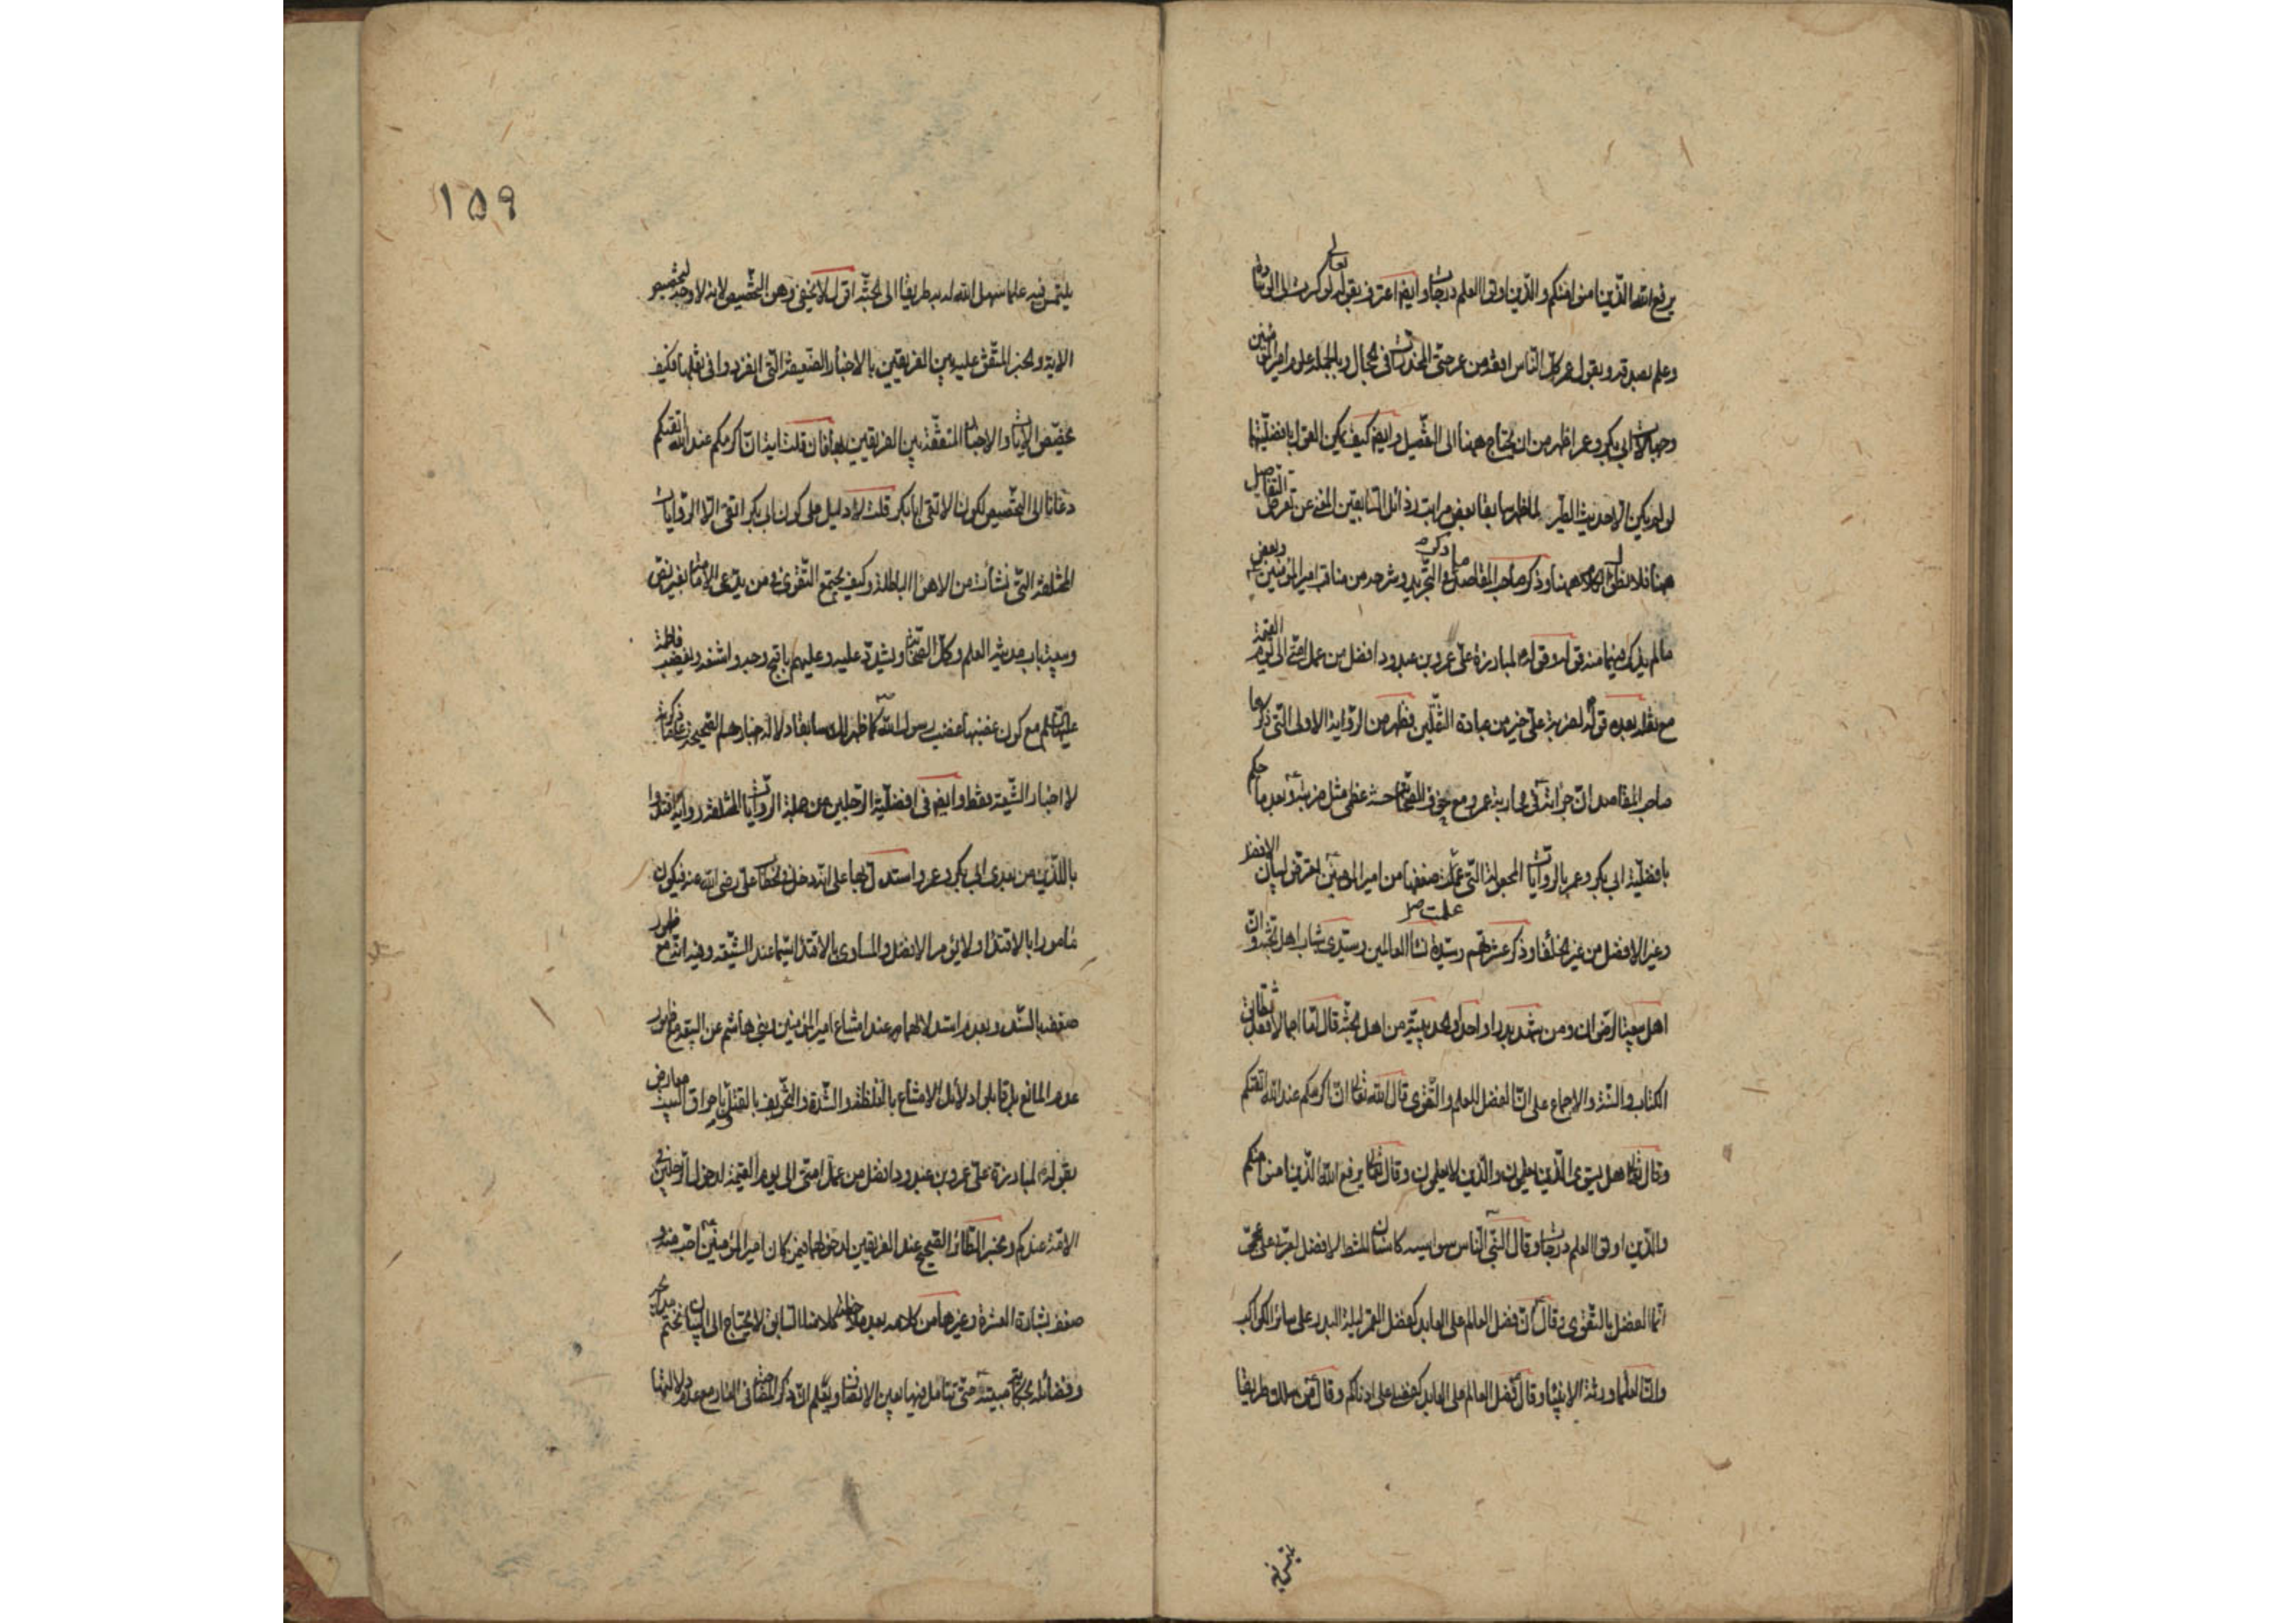 يرفع الله الذين امنوا منكم والذين اوتوا العلم درجات وايضا اعترف بقوله تعالى
وعلم بصدقه وبقول عمر كل الناس افقه من عمر حتى المخدرات في الحجال وبالجملة علم امير المؤمنين
وجهالة ابي بكر وعمر اظهر من ان يحتاج ههنا الى التفصيل وايضا كيف يمكن القول بافضليتهما
لو لم يكن الا حديث الطير لما ظهر سابقا بعض مراتب رذائل السابقين المغني عن تعرض التفاصيل
ههنا فلا نطول الكلام ههنا وذكر صاحب المقاصد ما ذكره في التجريد وشرحه من مناقب امير المؤمنين وبعض
ما لم يذكر فيهما منه قوله وقوله لمبارزة علي عمرو بن عبدود افضل من عمل امتي الى يوم القيمة
مع نقله بعده قوله لضربة علي خير من عبادة الثقلين فظهر من الرواية الاولى التي ذكرها
صاحب المقاصد ان جراته في محاربة عمرو مع خوف الصحابة حسنة عظمى مثل ضربته وبعد ما حكم
بافضلية ابي بكر وعمر بالروايات المجعولة التي علمت ضعفها من امير المؤمنين تعرض لبيان الافضل
وغير الافضل من غير الخلفاء وذكر عشرتهم وسيدة نساء العالمين وسيدي شباب اهل الجنة وان
اهل بيعة الرضوان ومن شهد بدرا واحدا والحديبية من اهل الجنة قال اما اجمالا فقد تطابق
الكتاب والسنة والاجماع على ان الفضل للعلم والتقوى قال الله تعالى ان اكرمكم عند الله اتقيكم
وقال تعالى هل يستوي الذين يعلمون والذين لا يعلمون وقال تعالى يرفع الله الذين امنوا منكم
والذين اوتوا العلم درجات وقال النبي الناس سواسية كاسنان المشط لا فضل لعربي على عجمي
انما الفضل بالتقوى وقال ان فضل العالم على العابد كفضل القمر ليلة البدر على سائر الكواكب
وان العلماء ورثة الانبياء وقال فضل العالم على العابد كفضلي على ادناكم وقال من سلك طريقا
يلتمس فيه
١٥٩
يلتمس فيه علما سهل الله له به طريقا الى الجنة اقول لا يخفى وهن التخصيص لانه لا وجه لتخصيص
الاية والخبر المتفق عليه بين الفريقين بالاخبار الضعيفة التي انفردوا في نقلها فكيف
تخصص الايات والاخبار المتفقة بين الفريقين بها فان قلت اية ان اكرمكم عند الله اتقيكم
دعانا الى التخصيص لكون الاتقى ابا بكر قلت لا دليل على كون ابي بكر اتقى الا الروايات
المختلقة التي نشأت من الاهواء الباطلة وكيف يجتمع التقوى في من يدعي الامامة بغير نص
وبيعة باب مدينة العلم وكل الصحابة ويشدد عليه وعليهم باقبح وجه واشنعه ويغضب فاطمة
عليها السلام مع كون غضبها غضب رسول الله كما ظهر لك سابقا دلالة اخبارهم الصحيحة على ما ذكرت
لا اخبار الشيعة فقط وايضا في افضلية الرجلين من جملة الروايات المختلقة رواية اقتدوا
باللذين من بعدي ابي بكر وعمر واستدل بها على انه دخل في الخطاب علي رضي الله عنه فيكون
مامورا بالاقتداء ولا يؤمر الافضل والمساوي بالاقتداء سيما عند الشيعة وفيه انه مع ظهور
ضعفه بالسند وبعدم استدلالهما به عند امتناع امير المؤمنين وبني هاشم عن البيعة مع ظهور
عدم المانع بل قابلوا دلائل الامتناع بالغلظة والشدة والتخويف بالقتل وباحراق البيت معارض
بقوله لمبارزة علي عمرو بن عبدود افضل من عمل امتي الى يوم القيمة لدخول الرجلين في
الامة عندكم وبخبر الطائر الصحيح عند الفريقين لدخولهما فيمن كان امير المؤمنين احب منه و
ضعف بشارة العشرة وغيرها من كلامه بعد ملاحظة كلامنا السابق لا يحتاج الى البيان
وفضائله حتى تتامل فيها بعين الانصاف ويعلم ان ذكر المقاصد في الغار مع عدم دلالتها